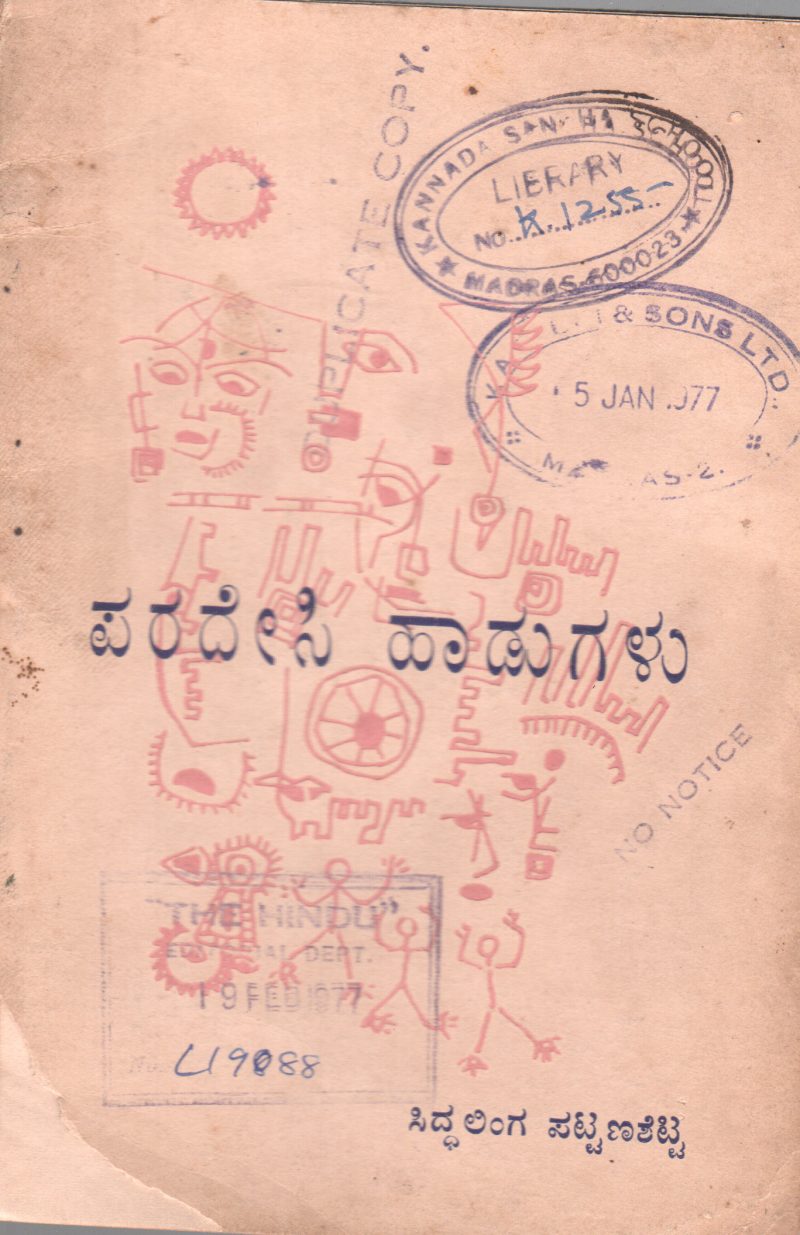 DUPLICATE COPY.
KANNADA SANGHA
LIBRARY
NO. K. 1255-
MADRAS-600023
& SONS LTD.
5 JAN 1977
ಪರದೇಸಿ ಹಾಡುಗಳು
NO NOTICE
"THE HINDU"
EDITORIAL DEPT.
19 FEB 1977
No.
ಸಿದ್ಧಲಿಂಗ ಪಟ್ಟಣಶೆಟ್ಟಿ